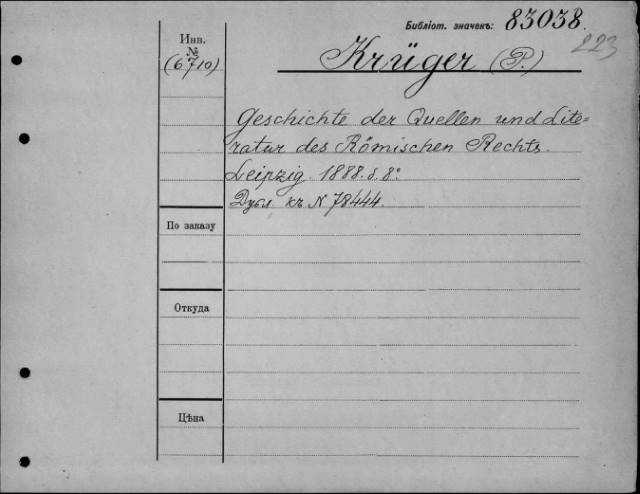 Библіот. значекъ: 83038.
223
Инв.
№
(6710)
Krüger (P.)
Geschichte der Quellen und Lite=
ratur des Römischen Rechts.
Leipzig. 1888. 8.8º
Дубл къ N 78444.
По заказу
Откуда
Цѣна